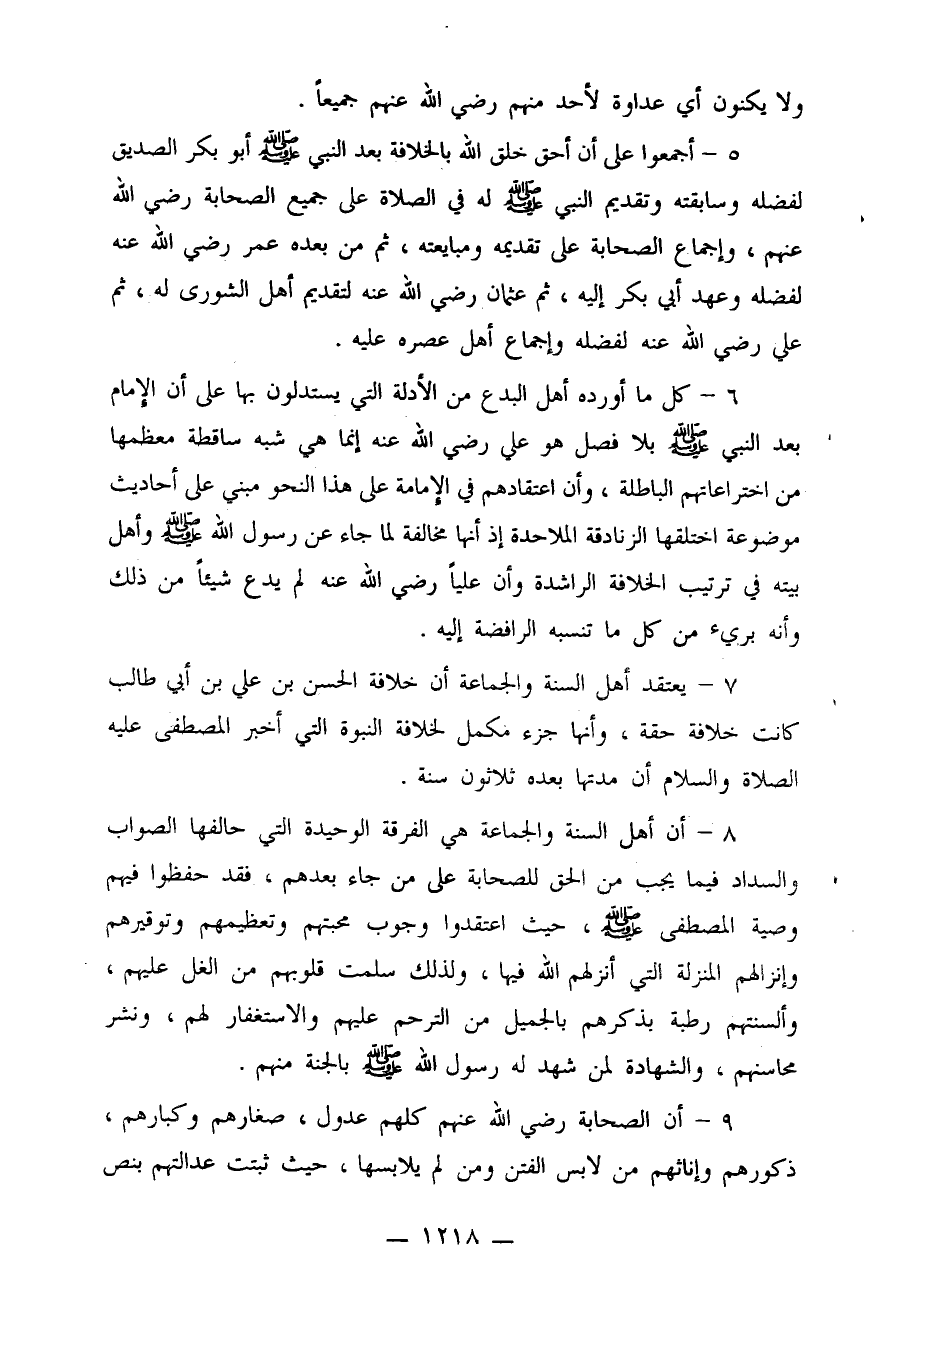 ولا يكنون أي عداوة لأحد منهم رضي الله عنهم جميعاً .
٥ – أجمعوا على أن أحق خلق الله بالخلافة بعد النبي ﷺ أبو بكر الصديق
لفضله وسابقته وتقديم النبي ﷺ له في الصلاة على جميع الصحابة رضي الله
عنهم ، وإجماع الصحابة على تقديمه ومبايعته ، ثم من بعده عمر رضي الله عنه
لفضله وعهد أبي بكر إليه ، ثم عثمان رضي الله عنه لتقديم أهل الشورى له ، ثم
علي رضي الله عنه لفضله وإجماع أهل عصره عليه .
٦ – كل ما أورده أهل البدع من الأدلة التي يستدلون بها على أن الإمام
بعد النبي ﷺ بلا فصل هو علي رضي الله عنه إنما هي شبه ساقطة معظمها
من اختراعاتهم الباطلة ، وأن اعتقادهم في الإمامة على هذا النحو مبني على أحاديث
موضوعة اختلقها الزنادقة الملاحدة إذ أنها مخالفة لما جاء عن رسول الله ﷺ وأهل
بيته في ترتيب الخلافة الراشدة وأن علياً رضي الله عنه لم يدع شيئاً من ذلك
وأنه بريء من كل ما تنسبه الرافضة إليه .
٧ – يعتقد أهل السنة والجماعة أن خلافة الحسن بن علي بن أبي طالب
كانت خلافة حقة ، وأنها جزء مكمل لخلافة النبوة التي أخبر المصطفى عليه
الصلاة والسلام أن مدتها بعده ثلاثون سنة .
٨ – أن أهل السنة والجماعة هي الفرقة الوحيدة التي حالفها الصواب
والسداد فيما يجب من الحق للصحابة على من جاء بعدهم ، فقد حفظوا فيهم
وصية المصطفى ﷺ ، حيث اعتقدوا وجوب محبتهم وتعظيمهم وتوقيرهم
وإنزالهم المنزلة التي أنزلهم الله فيها ، ولذلك سلمت قلوبهم من الغل عليهم ،
وألسنتهم رطبة بذكرهم بالجميل من الترحم عليهم والاستغفار لهم ، ونشر
محاسنهم ، والشهادة لمن شهد له رسول الله ﷺ بالجنة منهم .
٩ – أن الصحابة رضي الله عنهم كلهم عدول ، صغارهم وكبارهم ،
ذكورهم وإناثهم من لابس الفتن ومن لم يلابسها ، حيث ثبتت عدالتهم بنص
— ١٢١٨ —